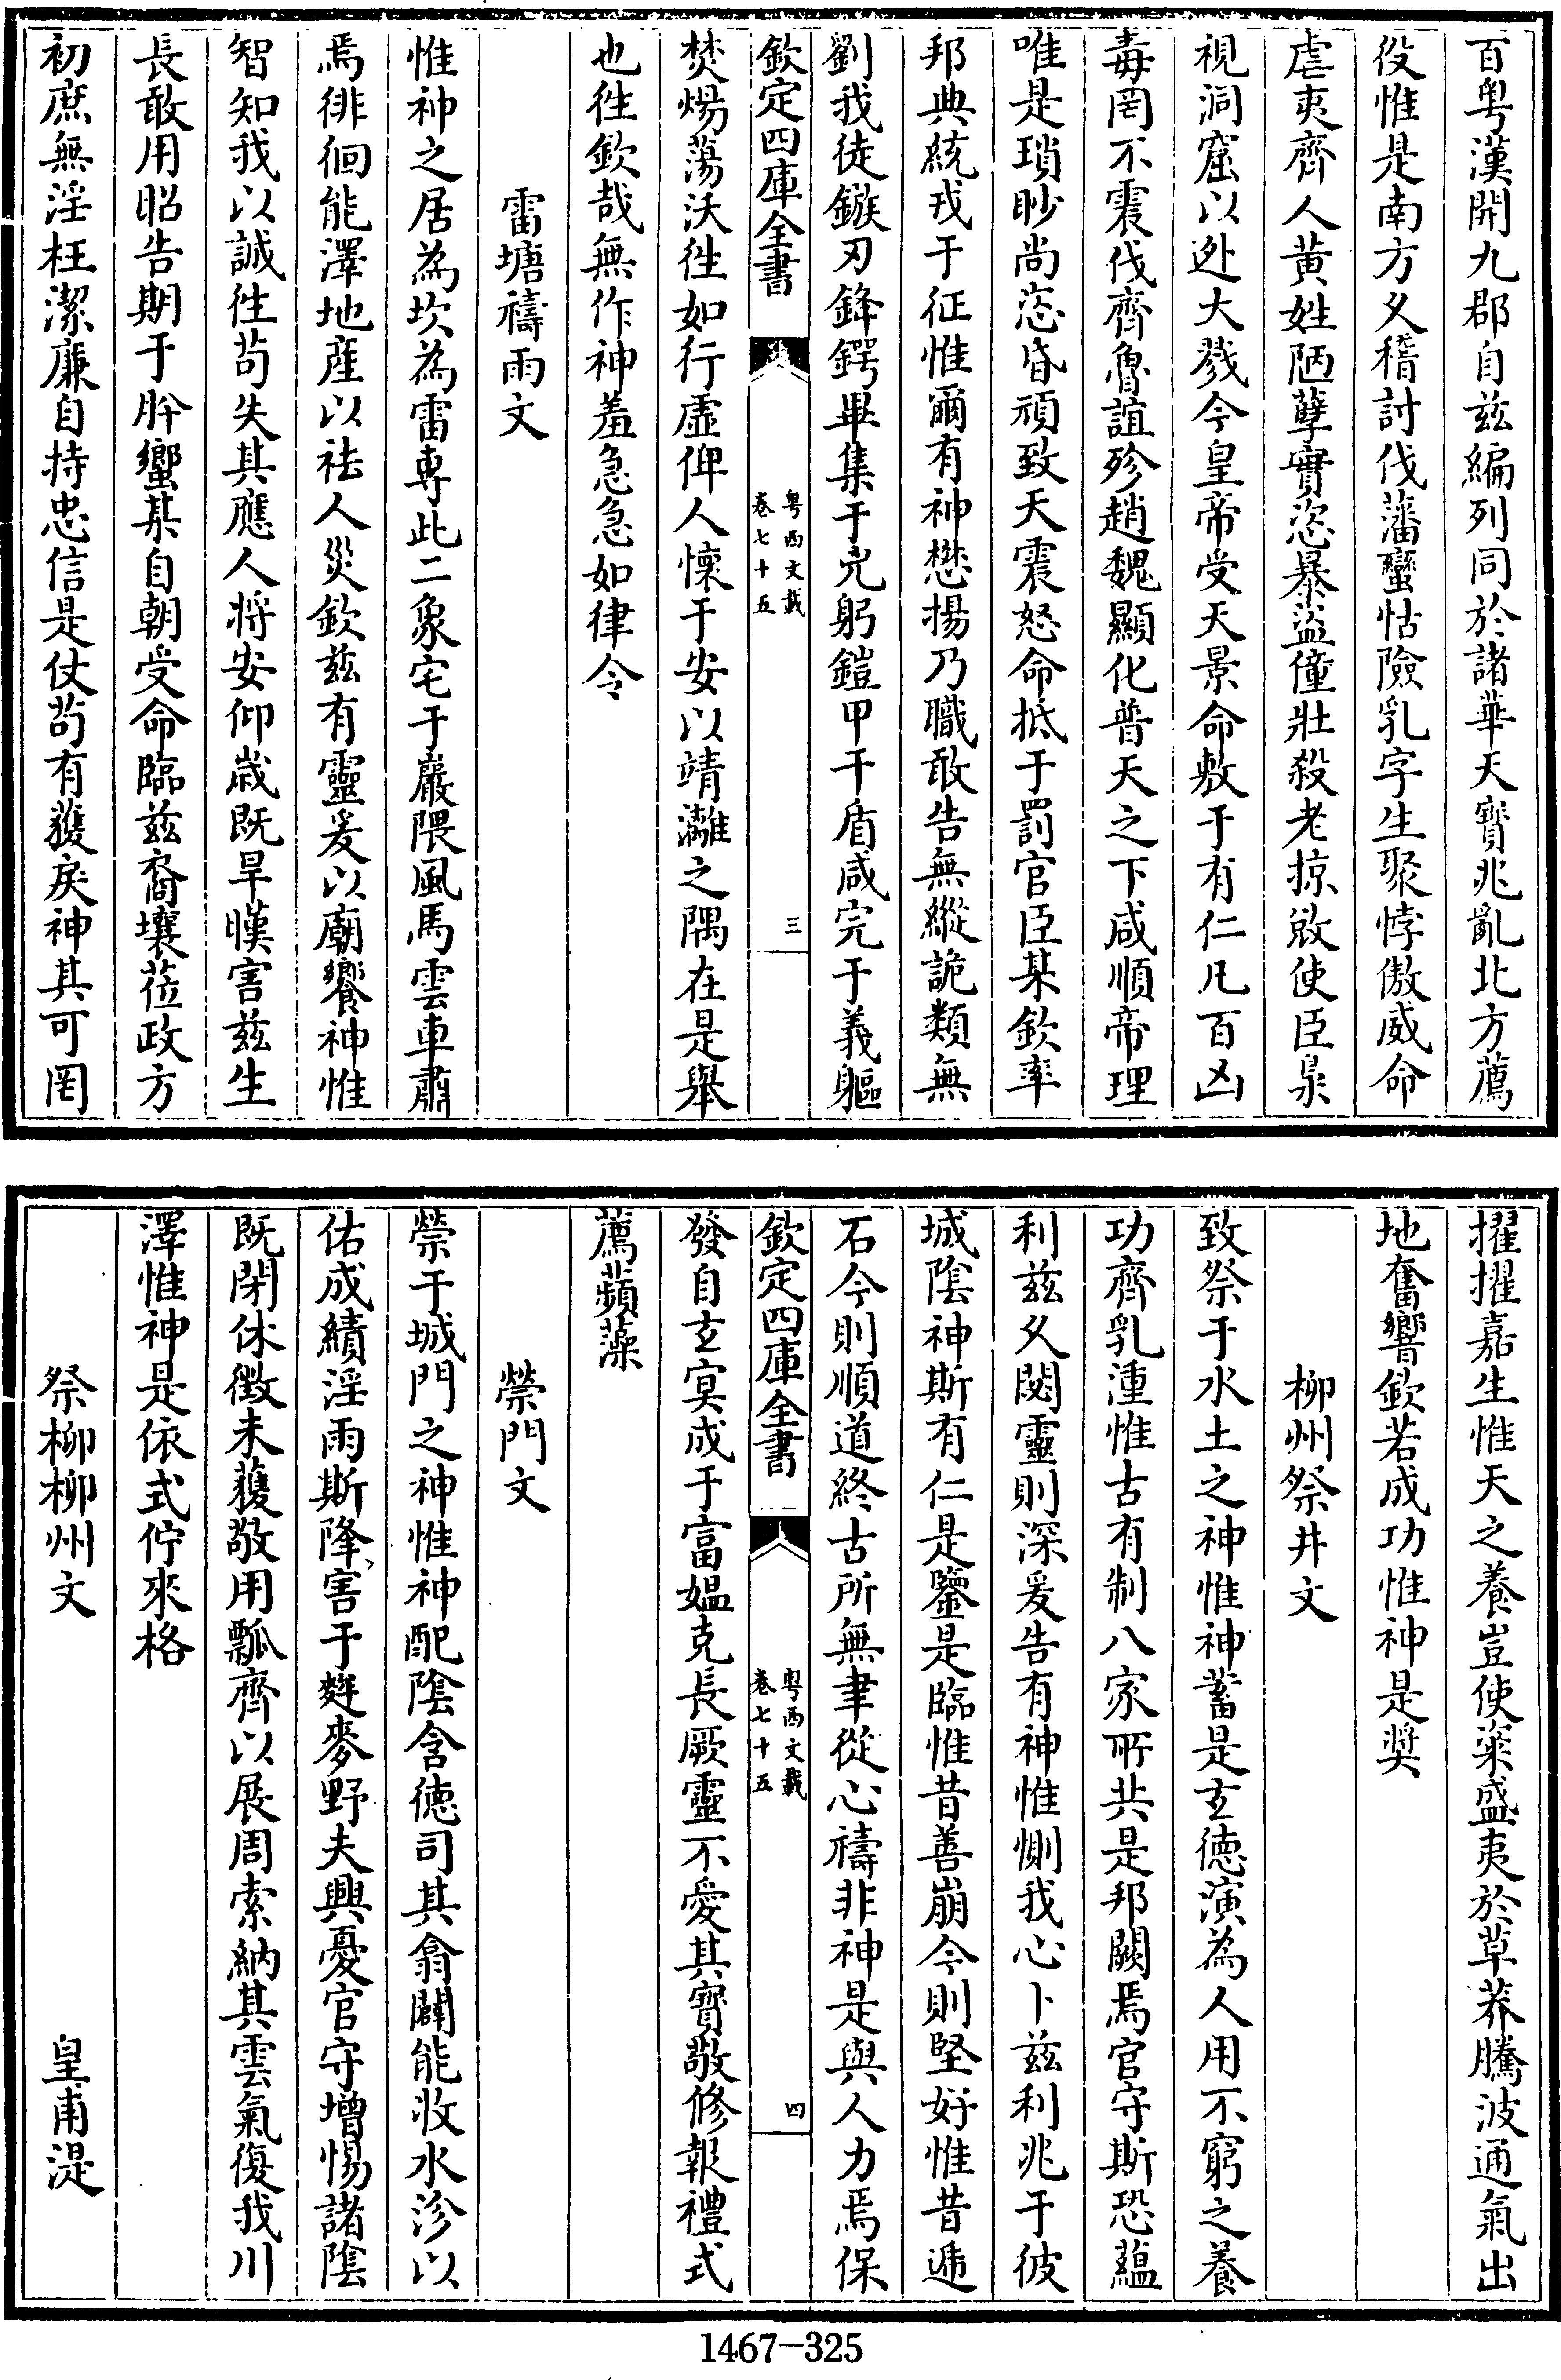 百粤漢開九郡自兹編列同於諸華天寶兆亂北方薦
役惟是南方乆稽討伐藩蠻怙險乳字生聚悖傲威命
虐夷齊人黄姓陋孽實恣暴盜僮壯殺老掠敓使臣㬥
視洞窟以逊大戮今皇帝受天景命敷于有仁凡百凶
毒罔不震伐齊魯誼殄趙魏顯化普天之下咸順帝理
唯是瑣眇尚恣昏頑致天震怒命抵于罰官臣某欽率
邦典統戎于征惟爾有神懋揚乃職敢告無縱詭類無
劉我徒鏃刃鋒鍔畢集于兇躬鎧甲干盾咸完于義軀
欽定四庫全書
粤西文載
卷七十五
三
焚煬蕩沃徃如行虛俾人懷于安以靖灕之隅在是舉
也徃欽哉無作神羞急急如律令
雷塘禱雨文
惟神之居為坎為雷專此二象宅于巖隈風馬雲車肅
焉徘徊能澤地產以祛人災欽兹有靈爰以廟饗神惟
智知我以誠徃苟失其應人將安仰嵗既旱暵害兹生
長敢用昭告期于肸蠁某自朝受命臨兹裔壤莅政方
初庶無淫枉潔㢘自持忠信是仗苟有獲戾神其可罔
擢擢嘉生惟天之養豈使粢盛夷於草莽騰波通氣出
地奮響欽若成功惟神是奬
柳州祭井文
致祭于水土之神惟神蓄是玄德演為人用不窮之養
功齊乳湩惟古有制八家所共是邦闕焉官守斯恐蘊
利兹乆閟靈則深爰告有神惟惻我心卜兹利兆于彼
城隂神斯有仁是鑒是臨惟昔善崩今則堅好惟昔遞
石今則順道終古所無聿從心禱非神是與人力焉保
欽定四庫全書
粤西文載
卷七十五
四
發自玄冥成于富媼克長厥靈不愛其寳敬修報禮式
薦蘋藻
禜門文
禜于城門之神惟神配隂含德司其翕闢能收水沴以
佑成績淫雨斯降害于麰麥野夫興憂官守增惕諸隂
既閉休徴未獲敬用瓢齊以展周索納其雲氣復我川
澤惟神是依式佇來格
祭柳柳州文
皇甫湜
1467-325